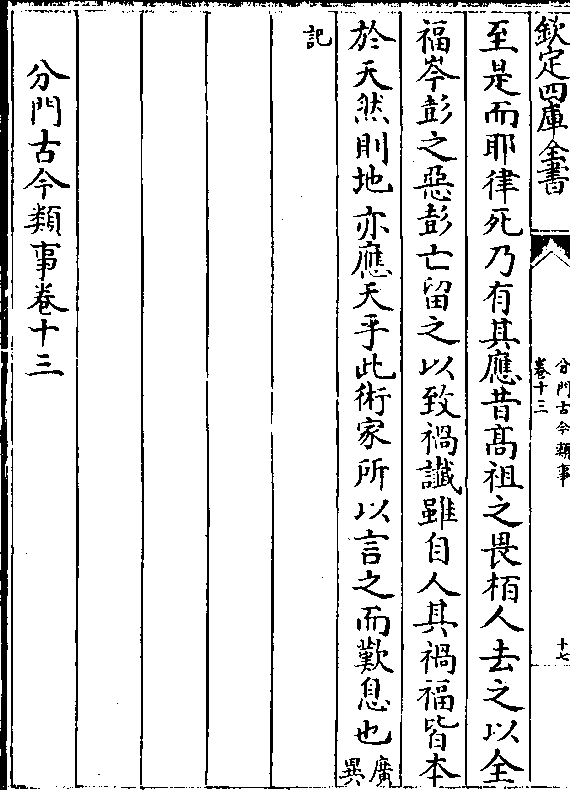 欽定四庫全書
分門古今類事
卷十三
十七
至是而耶律死乃有其應昔髙祖之畏栢人去之以全
福岑彭之惡彭亡留之以致禍讖雖自人其禍福皆本
於天然則地亦應天乎此術家所以言之而歎息也廣異
記
分門古今類事卷十三